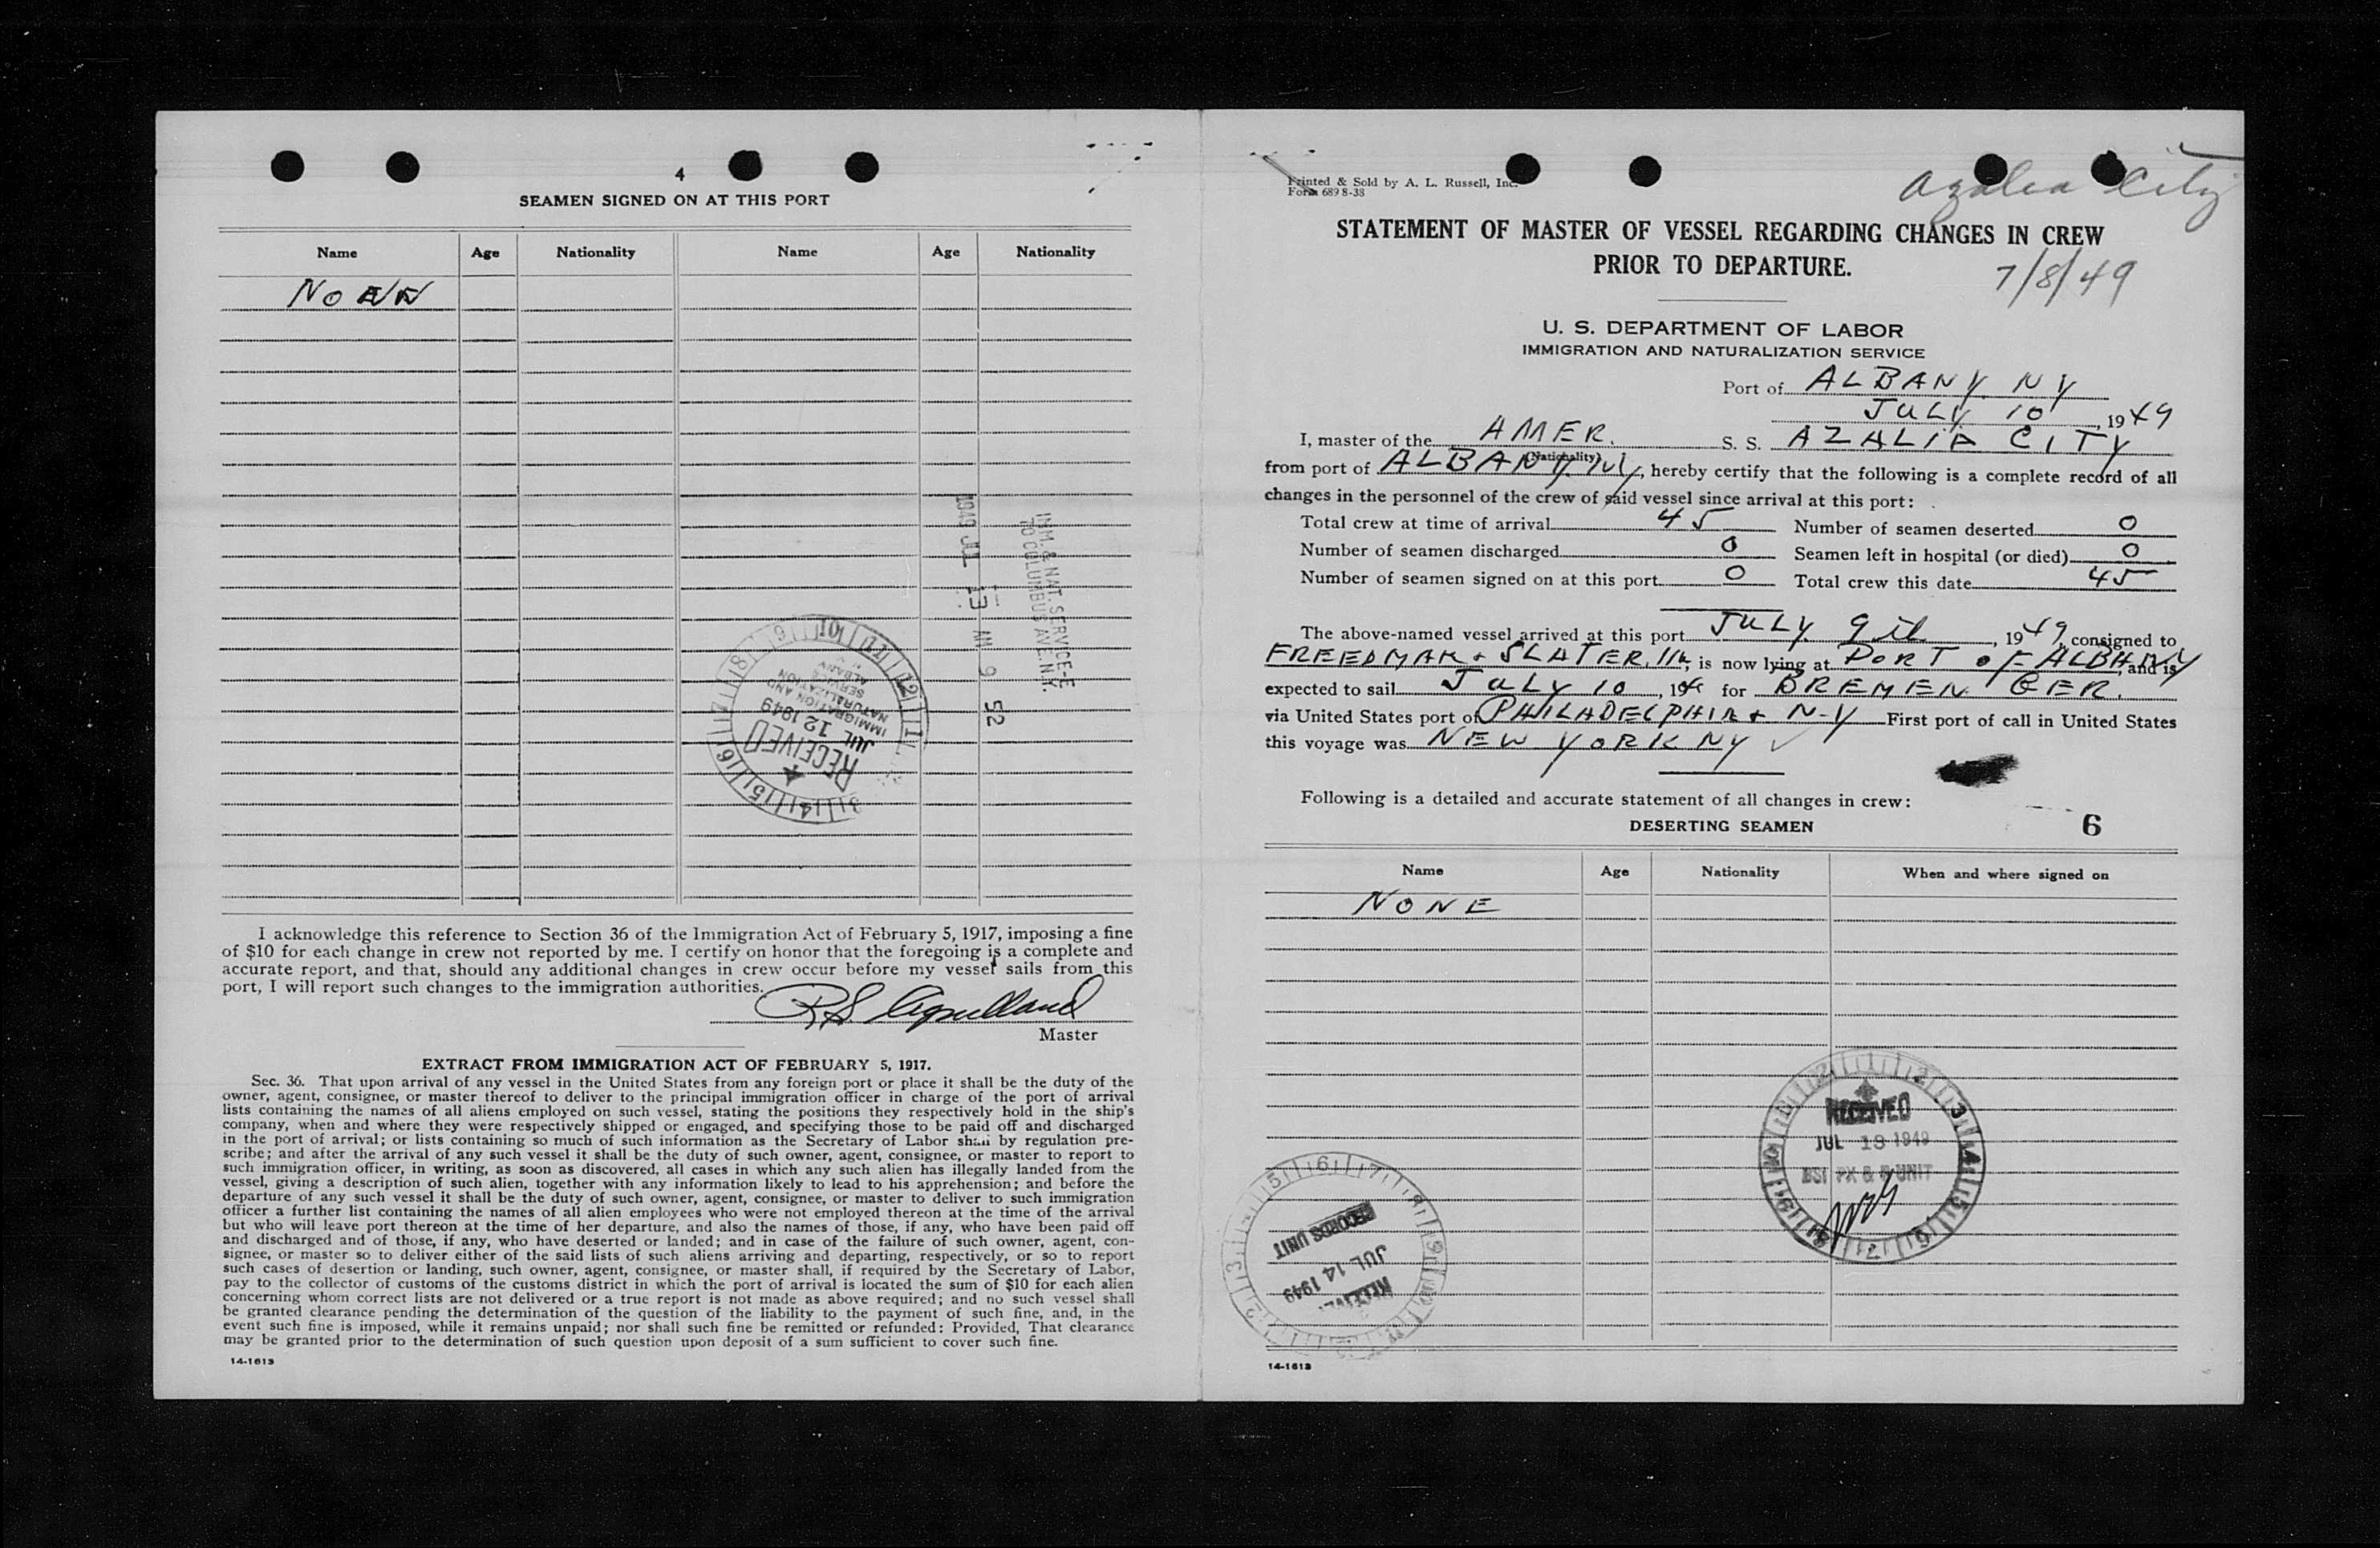 4
SEAMEN SIGNED ON AT THIS PORT
Name Age Nationality Name Age Nationality
1949 JUL 13 AM 9 52
IMM. & NAT. SERVICE-E
70 COLUMBUS AVE. N.Y.
RECEIVED
JUL 12 1949
IMMIGRATION AND
NATURALIZATION
SERVICE
ALBANY
I acknowledge this reference to Section 36 of the Immigration Act of February 5, 1917, imposing a fine
of $10 for each change in crew not reported by me. I certify on honor that the foregoing is a complete and
accurate report, and that, should any additional changes in crew occur before my vessel sails from this
port, I will report such changes to the immigration authorities.
Master
EXTRACT FROM IMMIGRATION ACT OF FEBRUARY 5, 1917.
Sec. 36. That upon arrival of any vessel in the United States from any foreign port or place it shall be the duty of the
owner, agent, consignee, or master thereof to deliver to the principal immigration officer in charge of the port of arrival
lists containing the names of all aliens employed on such vessel, stating the positions they respectively hold in the ship's
company, when and where they were respectively shipped or engaged, and specifying those to be paid off and discharged
in the port of arrival; or lists containing so much of such information as the Secretary of Labor shall by regulation pre-
scribe; and after the arrival of any such vessel it shall be the duty of such owner, agent, consignee, or master to report to
such immigration officer, in writing, as soon as discovered, all cases in which any such alien has illegally landed from the
vessel, giving a description of such alien, together with any information likely to lead to his apprehension; and before the
departure of any such vessel it shall be the duty of such owner, agent, consignee, or master to deliver to such immigration
officer a further list containing the names of all alien employees who were not employed thereon at the time of the arrival
but who will leave port thereon at the time of her departure, and also the names of those, if any, who have been paid off
and discharged and of those, if any, who have deserted or landed; and in case of the failure of such owner, agent, con-
signee, or master so to deliver either of the said lists of such aliens arriving and departing, respectively, or so to report
such cases of desertion or landing, such owner, agent, consignee, or master shall, if required by the Secretary of Labor,
pay to the collector of customs of the customs district in which the port of arrival is located the sum of $10 for each alien
concerning whom correct lists are not delivered or a true report is not made as above required; and no such vessel shall
be granted clearance pending the determination of the question of the liability to the payment of such fine, and, in the
event such fine is imposed, while it remains unpaid; nor shall such fine be remitted or refunded: Provided, That clearance
may be granted prior to the determination of such question upon deposit of a sum sufficient to cover such fine.
14-1613
Printed & Sold by A. L. Russell, Inc.
Form 689 8-38
Azalea City
STATEMENT OF MASTER OF VESSEL REGARDING CHANGES IN CREW
PRIOR TO DEPARTURE.
7/8/49
U. S. DEPARTMENT OF LABOR
IMMIGRATION AND NATURALIZATION SERVICE
Port of ALBANY NY
JULY 10, 1949
I, master of the AMER. S. S. AZALIA CITY
(Nationality)
from port of ALBANY, NY, hereby certify that the following is a complete record of all
changes in the personnel of the crew of said vessel since arrival at this port:
Total crew at time of arrival 45 Number of seamen deserted 0
Number of seamen discharged 0 Seamen left in hospital (or died) 0
Number of seamen signed on at this port 0 Total crew this date 45
The above-named vessel arrived at this port JULY 9th, 1949, consigned to
FREEDMAN + SLATER, is now lying at PORT OF ALBANY, and is
expected to sail JULY 10, 19 for BREMEN GER.
via United States port of PHILADELPHIA + N-Y First port of call in United States
this voyage was NEW YORK NY
Following is a detailed and accurate statement of all changes in crew:
DESERTING SEAMEN
6
Name Age Nationality When and where signed on
NONE
RECEIVED
JUL 13 1949
BSI PX & UNIT
RECORDS UNIT
JUL 14 1949
RECEIVED
14-1613